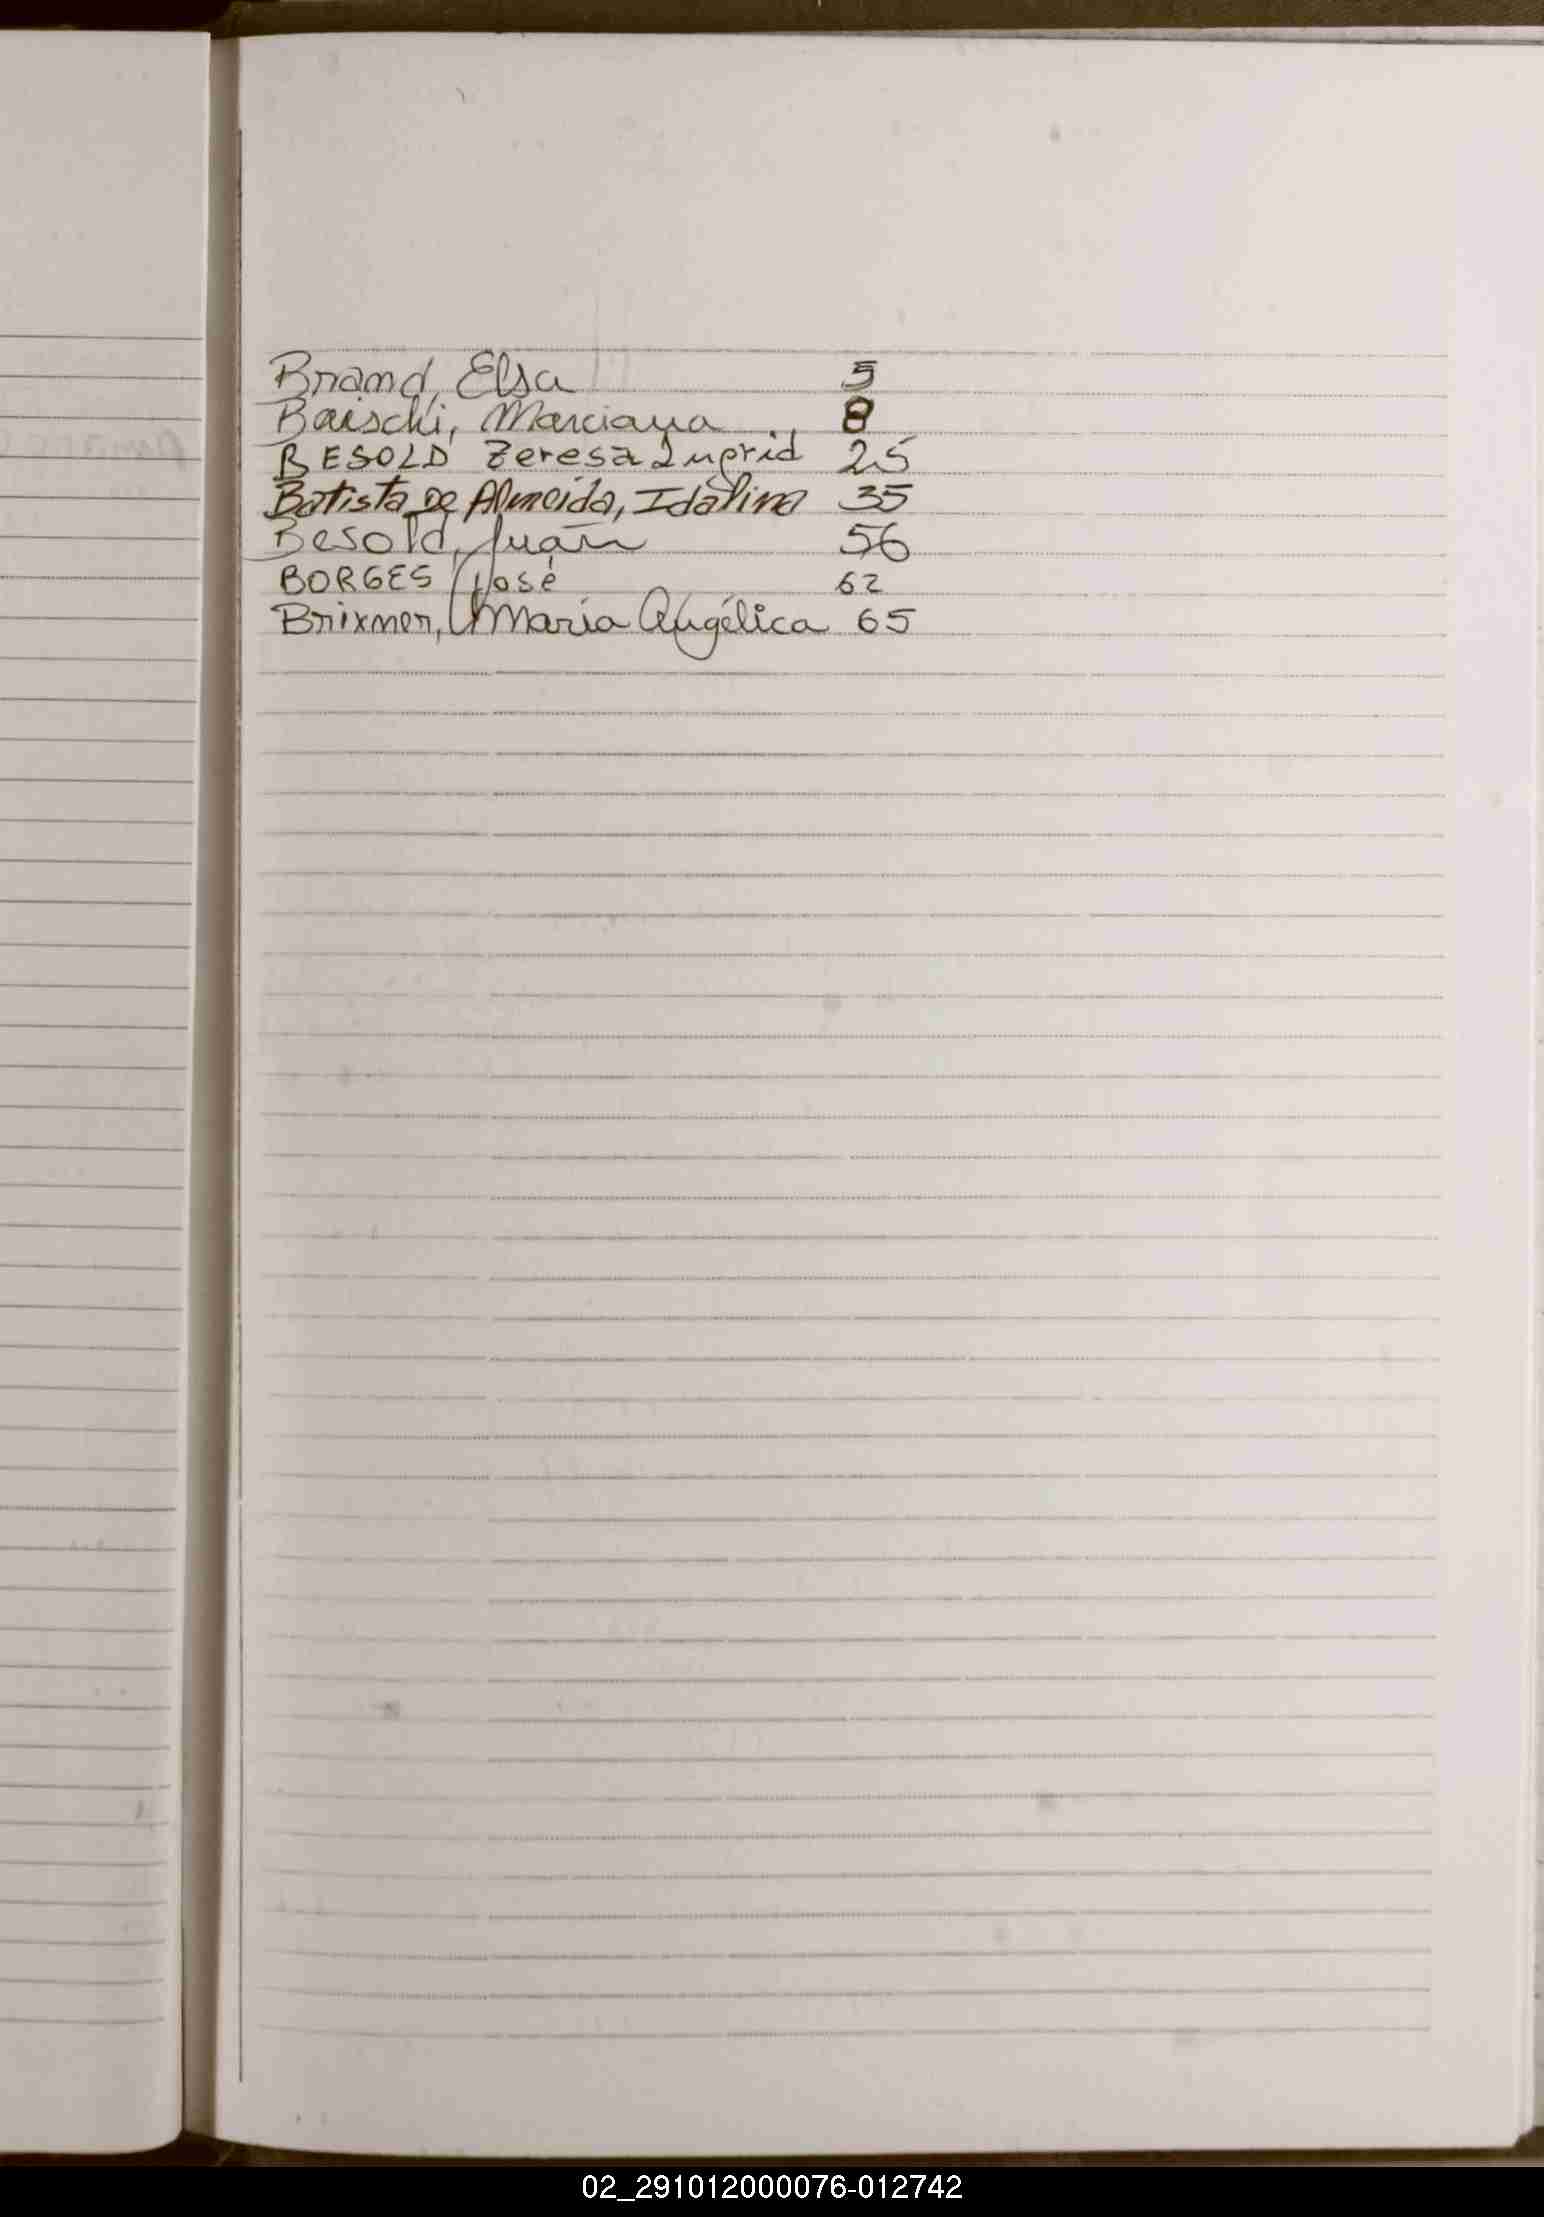 Brand, Elsa 5
Baischi, Marciana 8
BESOLD Teresa Ingrid 25
Batista De Almeida, Idalina 35
Besold, Juan 56
BORGES José 62
Brixner, Maria Angélica 65
02_291012000076-012742